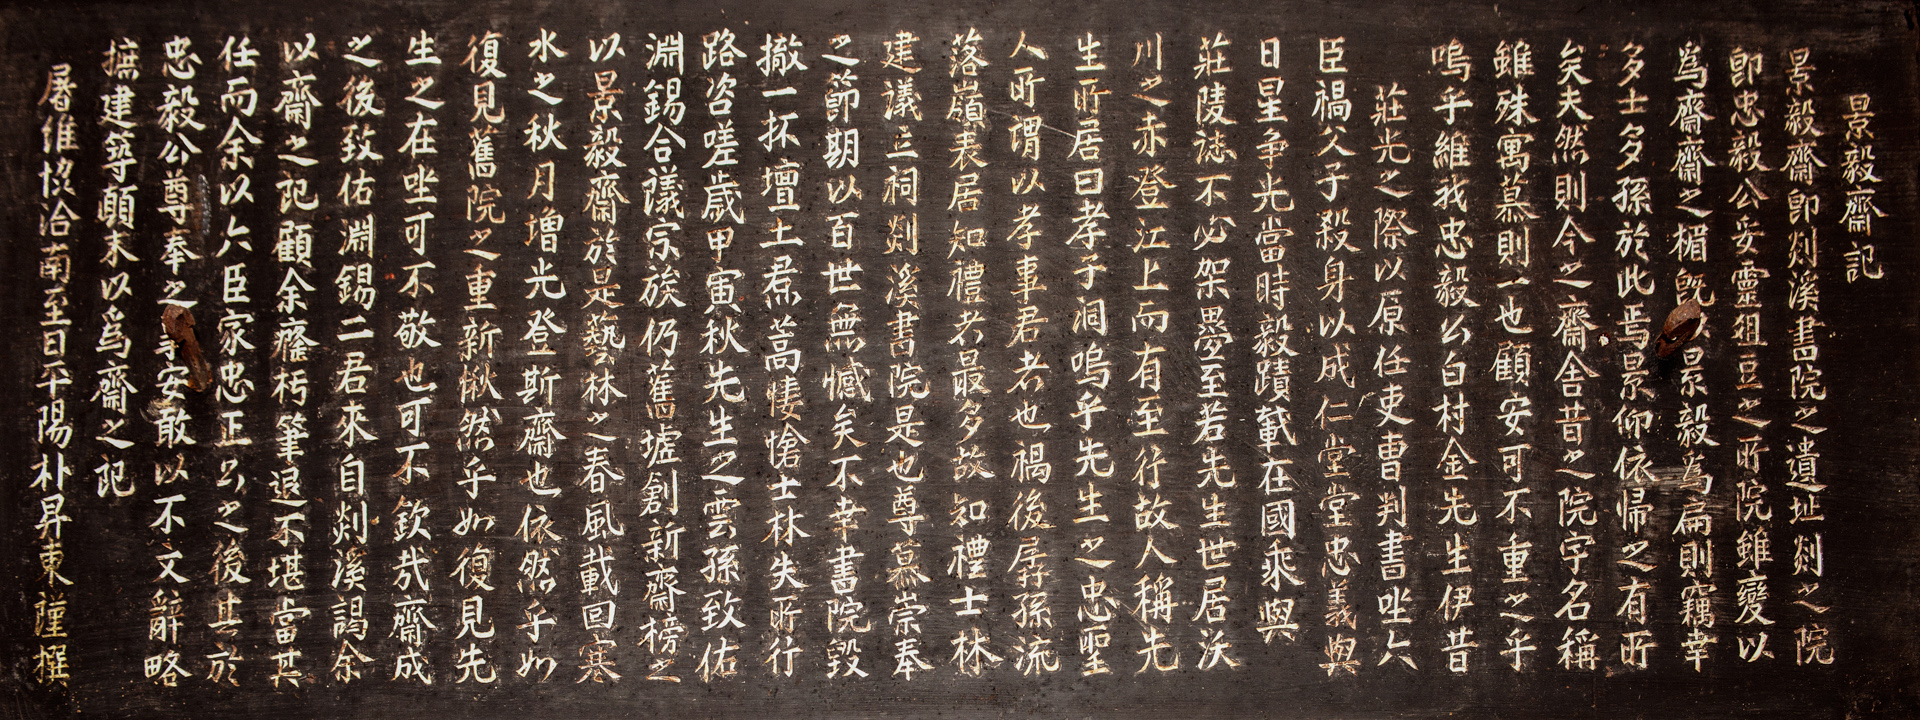 景毅齋記
景毅齋卽剡溪書院之遺址剡之院
卽忠毅公妥靈俎豆之所院雖變以
爲齋齋之楣旣以景毅爲扁則竊幸
多士多孫於此焉景仰依歸之有所
矣夫然則今之齋舍昔之院宇名稱
雖殊寓慕則一也顧安可不重之乎
嗚乎維我忠毅公白村金先生伊昔
莊光之際以原任吏曹判書坐六
臣禍父子殺身以成仁堂堂忠義與
日星争光當時毅蹟載在國乘與
莊陵誌不必架壘至若先生世居沃
川之赤登江上而有至行故人稱先
生所居曰孝子洞嗚乎先生之忠聖
人所謂以孝事君者也禍後孱孫流
落嶺表居知禮者最多故知禮士林
建議立祠剡溪書院是也尊慕崇奉
之節期以百世無憾矣不幸書院毀
撤一抔壇土焄蒿悽愴士林失所行
路咨嗟歲甲寅秋先生之雲孫致佑
淵錫合議宗族仍舊墟創新齋榜之
以景毅齋於是藝林之春風載回寒
水之秋月增光登斯齋也依然乎如
復見舊院之重新愀然乎如復見先
生之在坐可不敬也可不欽哉齋成
之後致佑淵錫二君來自剡溪謁余
以齋之記顧余癃朽筆退不堪當其
任而余以六臣家忠正公之後其於
忠毅公尊奉之 安敢以不文辭略
摭建築顚末以爲齋之記
屠維協洽南至日平陽朴昇東謹撰